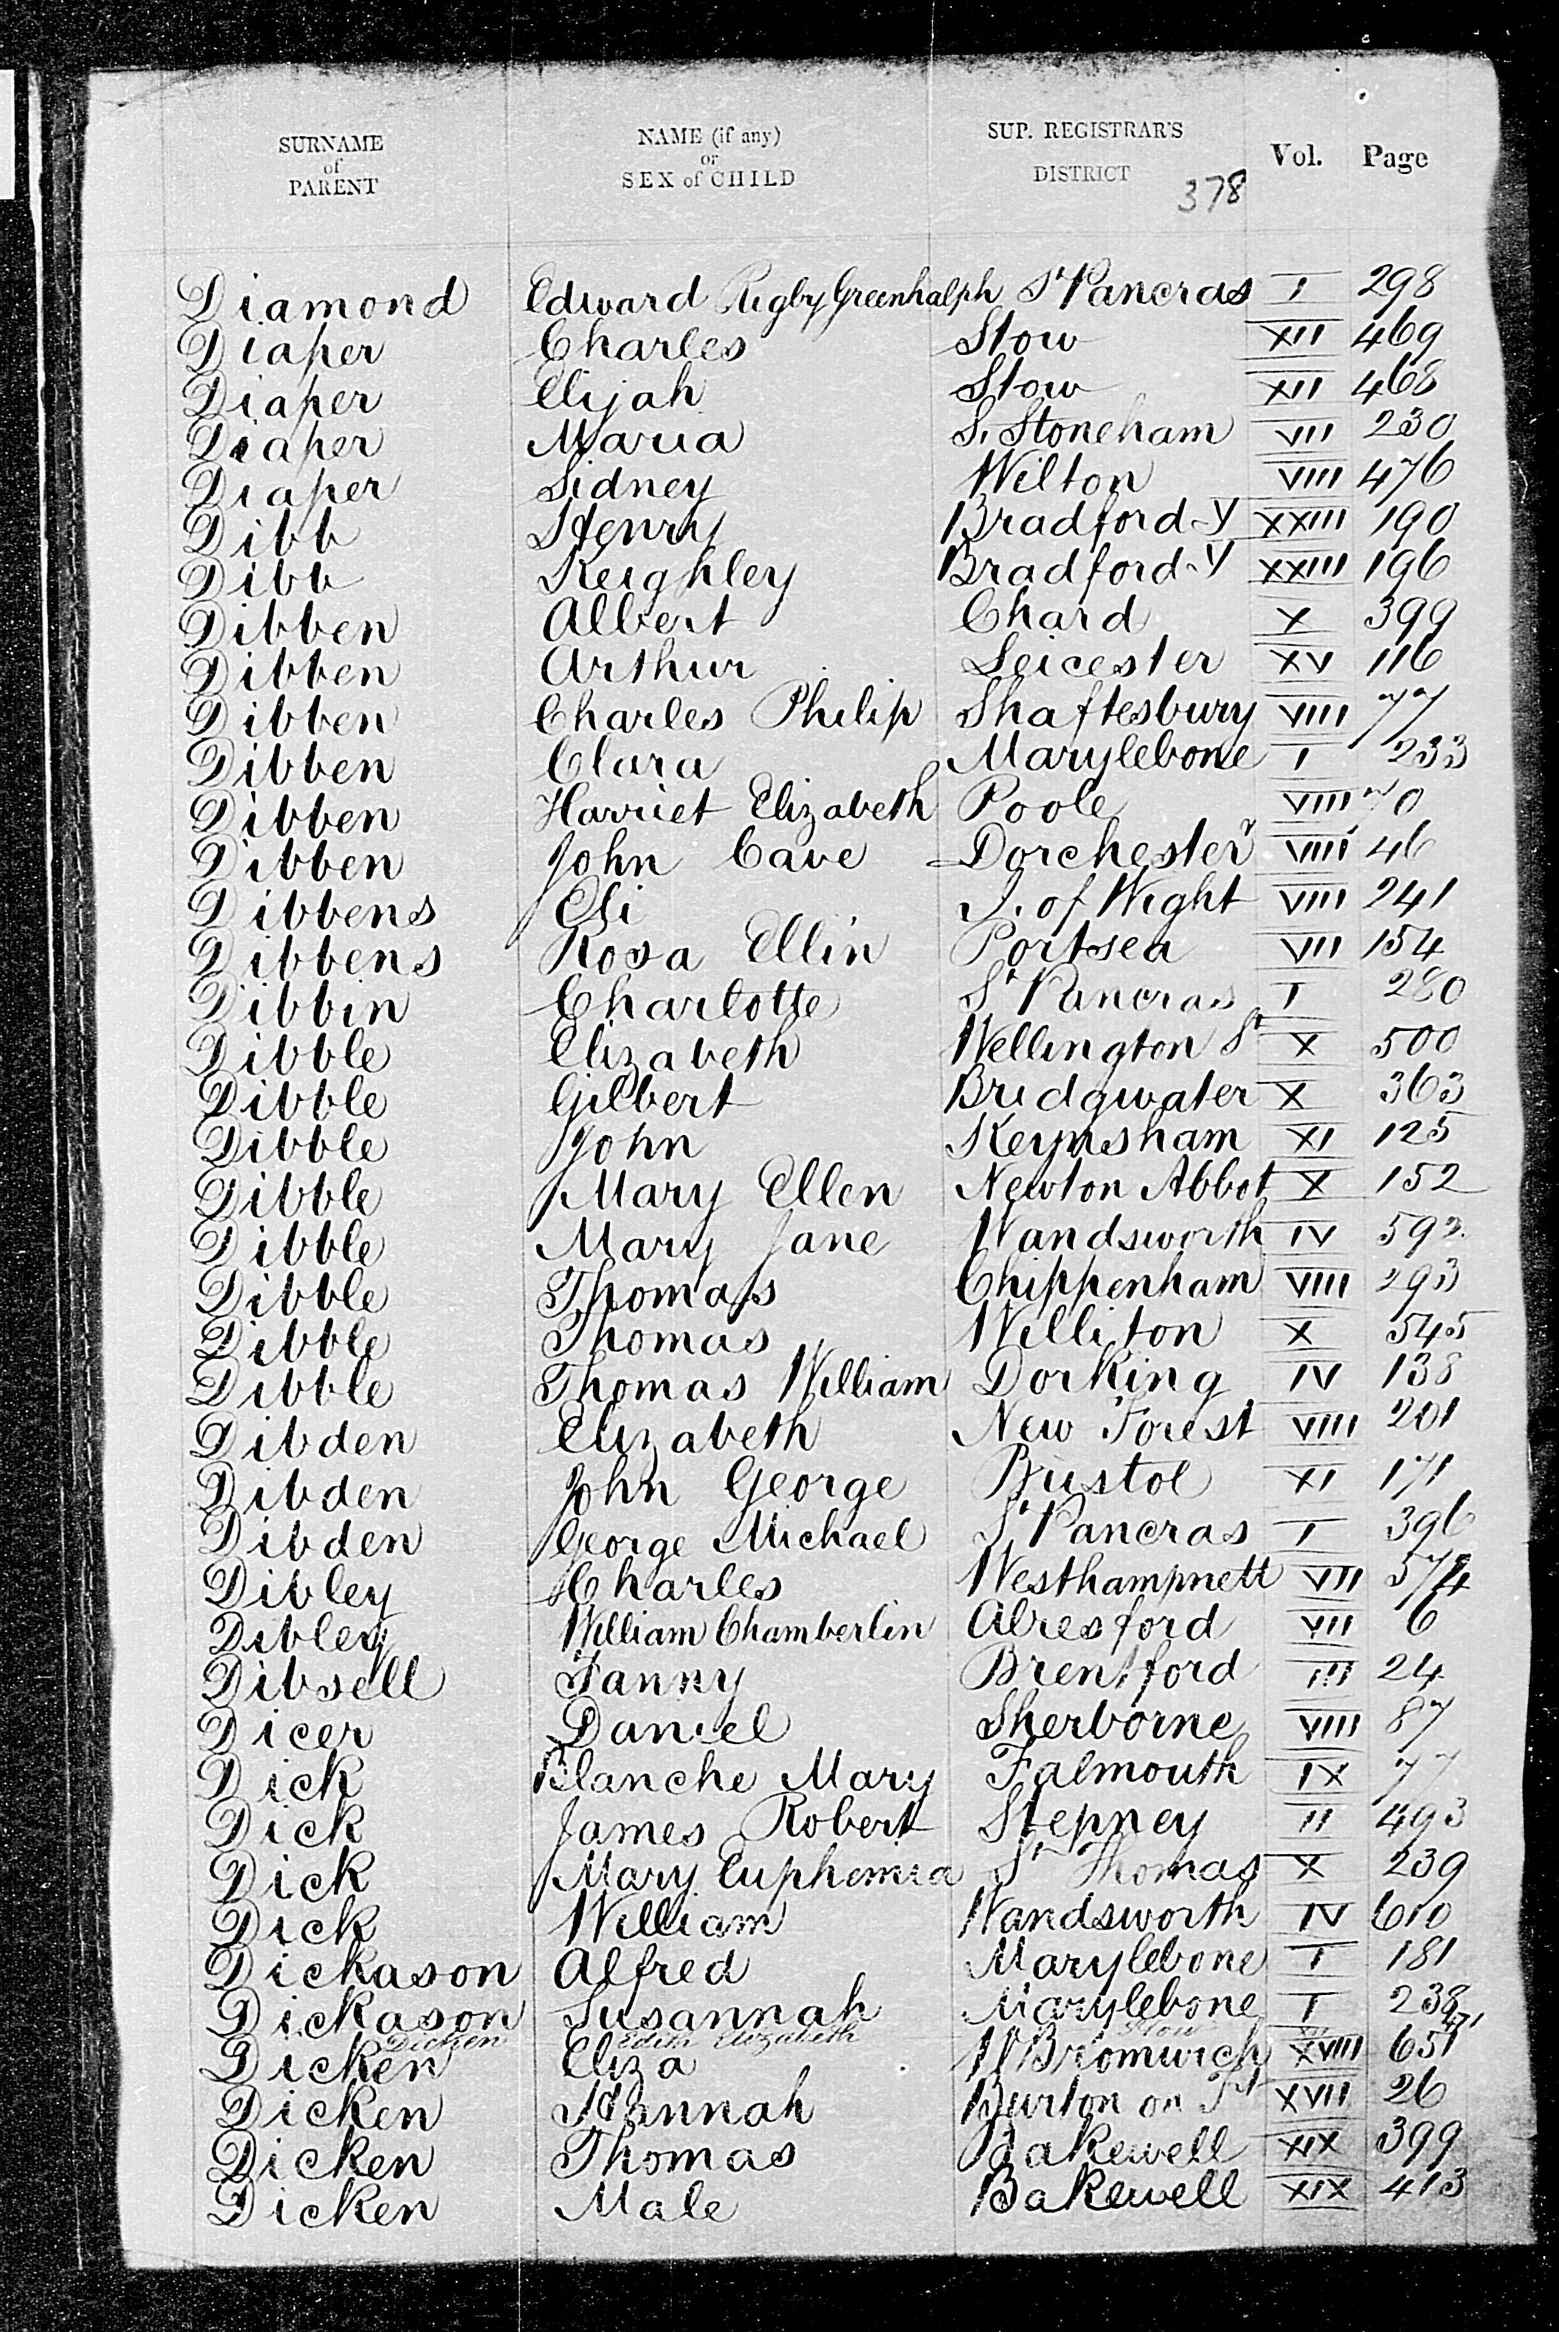 SURNAME of PARENT NAME (if any) or SEX of CHILD SUP. REGISTRAR'S DISTRICT Vol. Page
378
Diamond Edward Rigby Greenhalph St Pancras I 298
Diaper Charles Stow XII 469
Diaper Elijah Stow XII 468
Diaper Maria S. Stoneham VII 230
Diaper Sidney Wilton VIII 476
Dibb Henry Bradford-Y XXIII 190
Dibb Keighley Bradford-Y XXIII 196
Dibben Albert Chard X 399
Dibben Arthur Leicester XV 116
Dibben Charles Philip Shaftesbury VIII 77
Dibben Clara Marylebone I 233
Dibben Harriet Elizabeth Poole VIII 70
Dibben John Cave Dorchester VIII 46
Dibbens Eli I. of Wight VIII 241
Dibbens Rosa Ellin Portsea VII 154
Dibbin Charlotte St Pancras I 280
Dibble Elizabeth Wellington St X 500
Dibble Gilbert Bridgwater X 363
Dibble John Keynsham XI 125
Dibble Mary Ellen Newton Abbot X 152
Dibble Mary Jane Wandsworth IV 592
Dibble Thomas Chippenham VIII 293
Dibble Thomas Williton X 545
Dibble Thomas William Dorking IV 138
Dibden Elizabeth New Forest VIII 201
Dibden John George Bristol XI 171
Dibden George Michael St Pancras I 396
Dibley Charles Westhampnett VII
Dibley William Chamberlin Alresford VII 6
Dibsell Fanny Brentford III 24
Dicer Daniel Sherborne VIII 87
Dick Blanche Mary Falmouth IX 77
Dick James Robert Stepney II 493
Dick Mary Euphemia St Thomas X 239
Dick William Wandsworth IV 610
Dickason Alfred Marylebone I 181
Dickason Susannah Marylebone I 238
Dicken Edith Elizabeth Stow
Dicken Eliza W Bromwich XVIII 651
Dicken Hannah Burton on Tt XVII 26
Dicken Thomas Bakewell XIX 399
Dicken Male Bakewell XIX 413